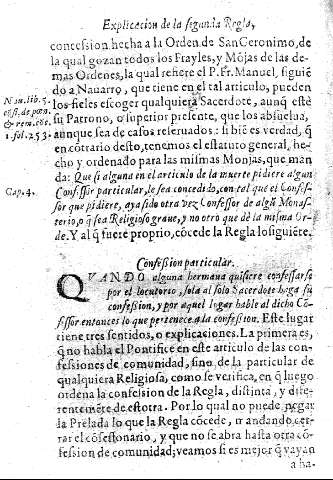 Explicacion de la segunda Regla,
concession hecha a la Orden de San Geronimo, de
la qual gozan todos los Frayles, y Mōjas de las de-
mas Ordenes, la qual refiere el P. Fr. Manuel, siguiē
do a Nauarro, que tiene en el tal articulo, pueden
los fieles escoger qualquiera Sacerdote, aunq̄ estē
su Patrono, o superior presente, que los absuelua,
aunque sea de casos reseruados: si biē es verdad, q̄
en cōtrario desto, tenemos el estatuto general, he-
cho y ordenado para las mismas Monjas, que man
da: Que si alguna en el articulo de la muerte pidiere algun
Confessor particular, le sea concedido, con tal que el Confes-
sor que pidiere, aya sido otra vez Confessor de algū Monas-
terio, o q̄ sea Religioso graue, y no otro que dē la misma Or-
de. Y al q̄ fuere proprio, cōcede la Regla lo siguiēte.
Nau. lib. 5.
& rem. cōs.
1. fol. 253.
Cap. 4.
Confession particular.
QVANDO alguna hermana quisiere confessarse
por el locutorio, sola al solo Sacerdote haga su
confession, y por aquel lugar hable al dicho Cō-
fessor entonces lo que pertenece a la confessiō. Este lugar
tiene tres sentidos, o explicaciones. La primera es,
q̄ no habla el Pontifice en este articulo de las con-
fessiones de comunidad, sino de la particular de
qualquiera Religiosa, como se verifica, en q̄ luego
ordena la confession de la Regla, distinta, y dife-
rentemēte de estotra. Por lo qual no puede negar
la Prelada lo que la Regla cōcede, ni andando cer-
rar el cōfessionario, y que no se abra hasta otra cō-
fession de comunidad; veamos si es mejor q̄ vayan
a ha-